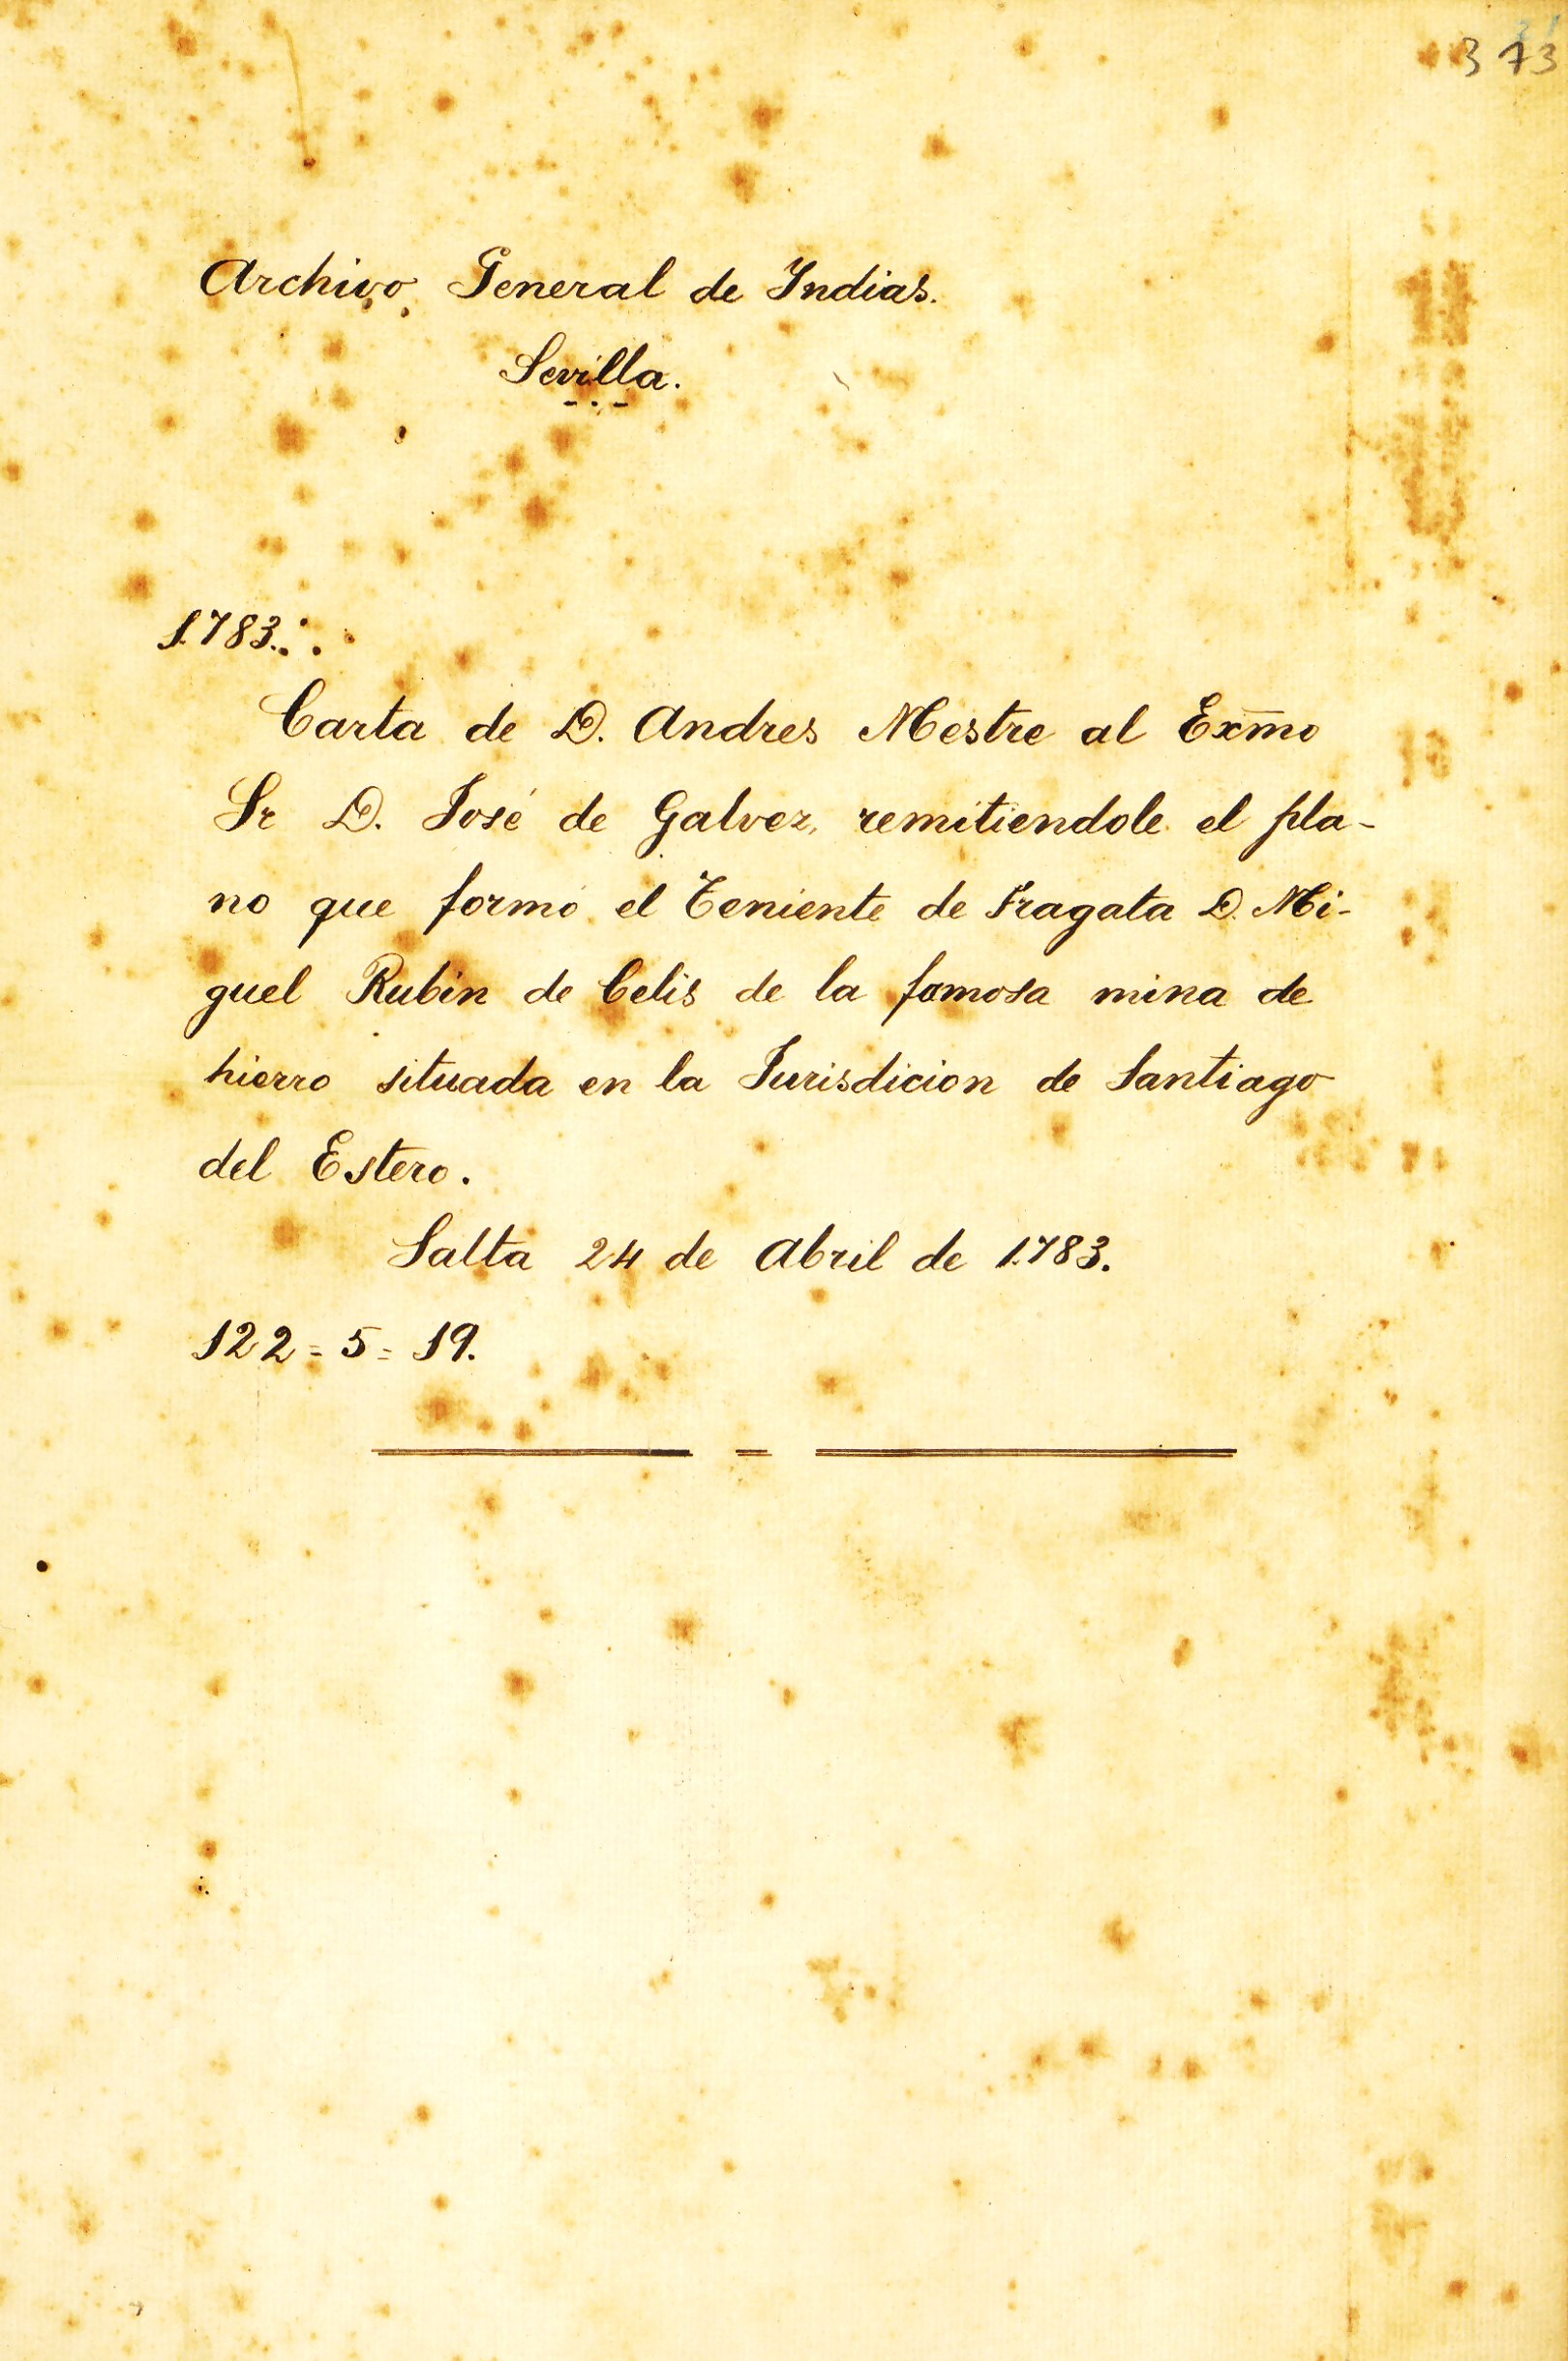 373
Archivo General de Indias.
Sevilla.
1.783.
Carta de D. Andres Mestre al Exm̄o
Sr D. José de Galvez, remitiendole el pla-
no que formó el Teniente de Fragata D. Mi-
guel Rubin de Celis de la famosa mina de
hierro situada en la Jurisdicion de Santiago
del Estero.
Salta 24 de Abril de 1.783.
122=5=19.